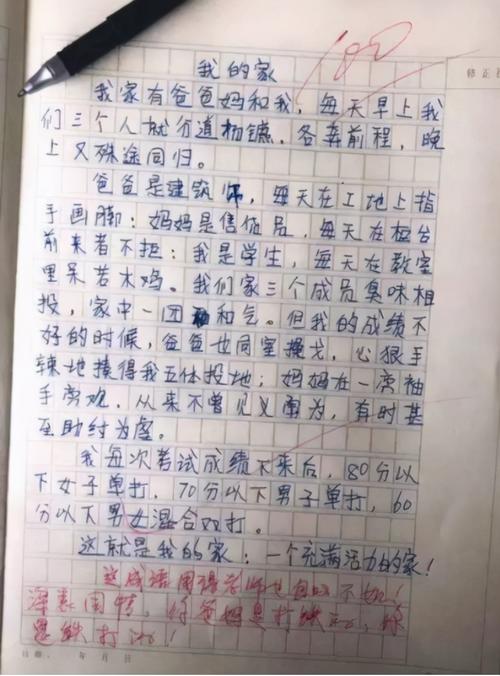 100
修正
我的家
我家有爸爸妈和我，每天早上我
们三个人就分道扬镳，各奔前程，晚
上又殊途同归。
爸爸是建筑师，每天在工地上指
手画脚；妈妈是售货员，每天在柜台
前来者不拒；我是学生，每天在教室
里呆若木鸡。我们家三个成员臭味相
投，家中一团和气。但我的成绩不
好的时候，爸爸也同室操戈，心狠手
辣地揍得我五体投地；妈妈在一旁袖
手旁观，从来不曾见义勇为，有时甚
至助纣为虐。
我每次考试成绩下来后，80分以
下女子单打，70分以下男子单打，60
分以下男女混合双打。
这就是我的家：一个充满活力的家！
这成语用得老师也自叹不如！
深表同情，你爸妈是打铁的，你
是铁打的！
年 月 日